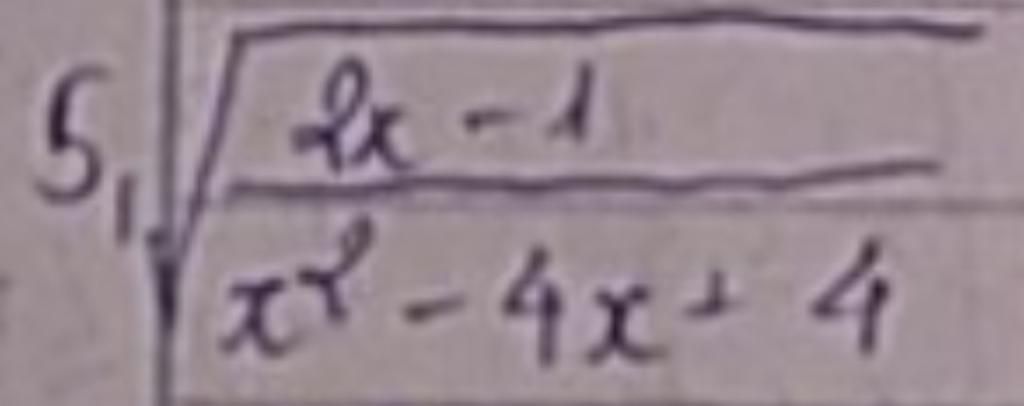 5, √((2x - 1)/(x² - 4x + 4))